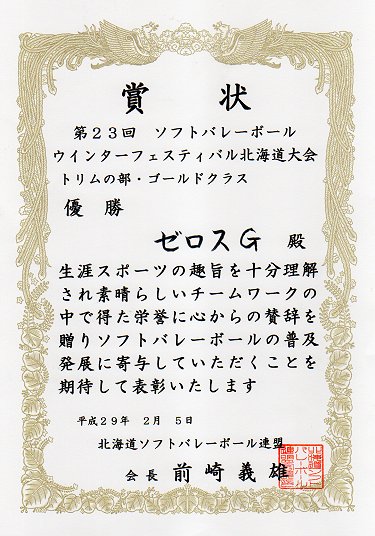 賞状
第23回 ソフトバレーボール
ウインターフェスティバル北海道大会
トリムの部・ゴールドクラス
優勝
ゼロスG 殿
生涯スポーツの趣旨を十分理解
され素晴らしいチームワークの
中で得た栄誉に心からの賛辞を
贈りソフトバレーボールの普及
発展に寄与していただくことを
期待して表彰いたします
平成29年 2月 5日
北海道ソフトバレーボール連盟
会長 前崎義雄